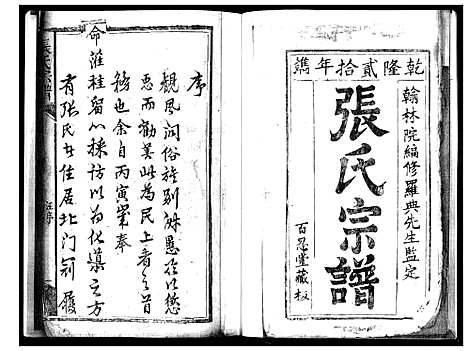 乾隆貳拾年鐫
翰林院編修羅典先生監定
張氏宗譜
百忍堂藏板
序
觀風問俗旌別淑慝所以懲
惡而勸善此為民上者之首
務也余自丙寅蒙奉
命蒞桂留心採訪以為化導之方
有張氏者住居北門前履
張氏宗譜